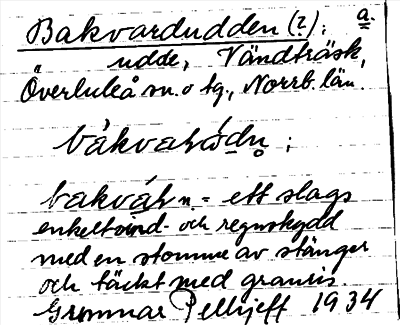 Bakvardudden (?); a.
udde, Vändträsk,
Överluleå sn. o tg., Norrb. län.
bakvàh n. = ett slags
enkelt vind- och regnskydd
med en stomme av stänger
och täckt med granris.
Grunnar Pellijeff 1934